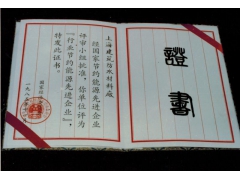 證書
上海建筑防水材料廠
经国家节约能源先进企业
评审小组批准，你单位评为
“行业节约能源先进企业”，
特发此证书。